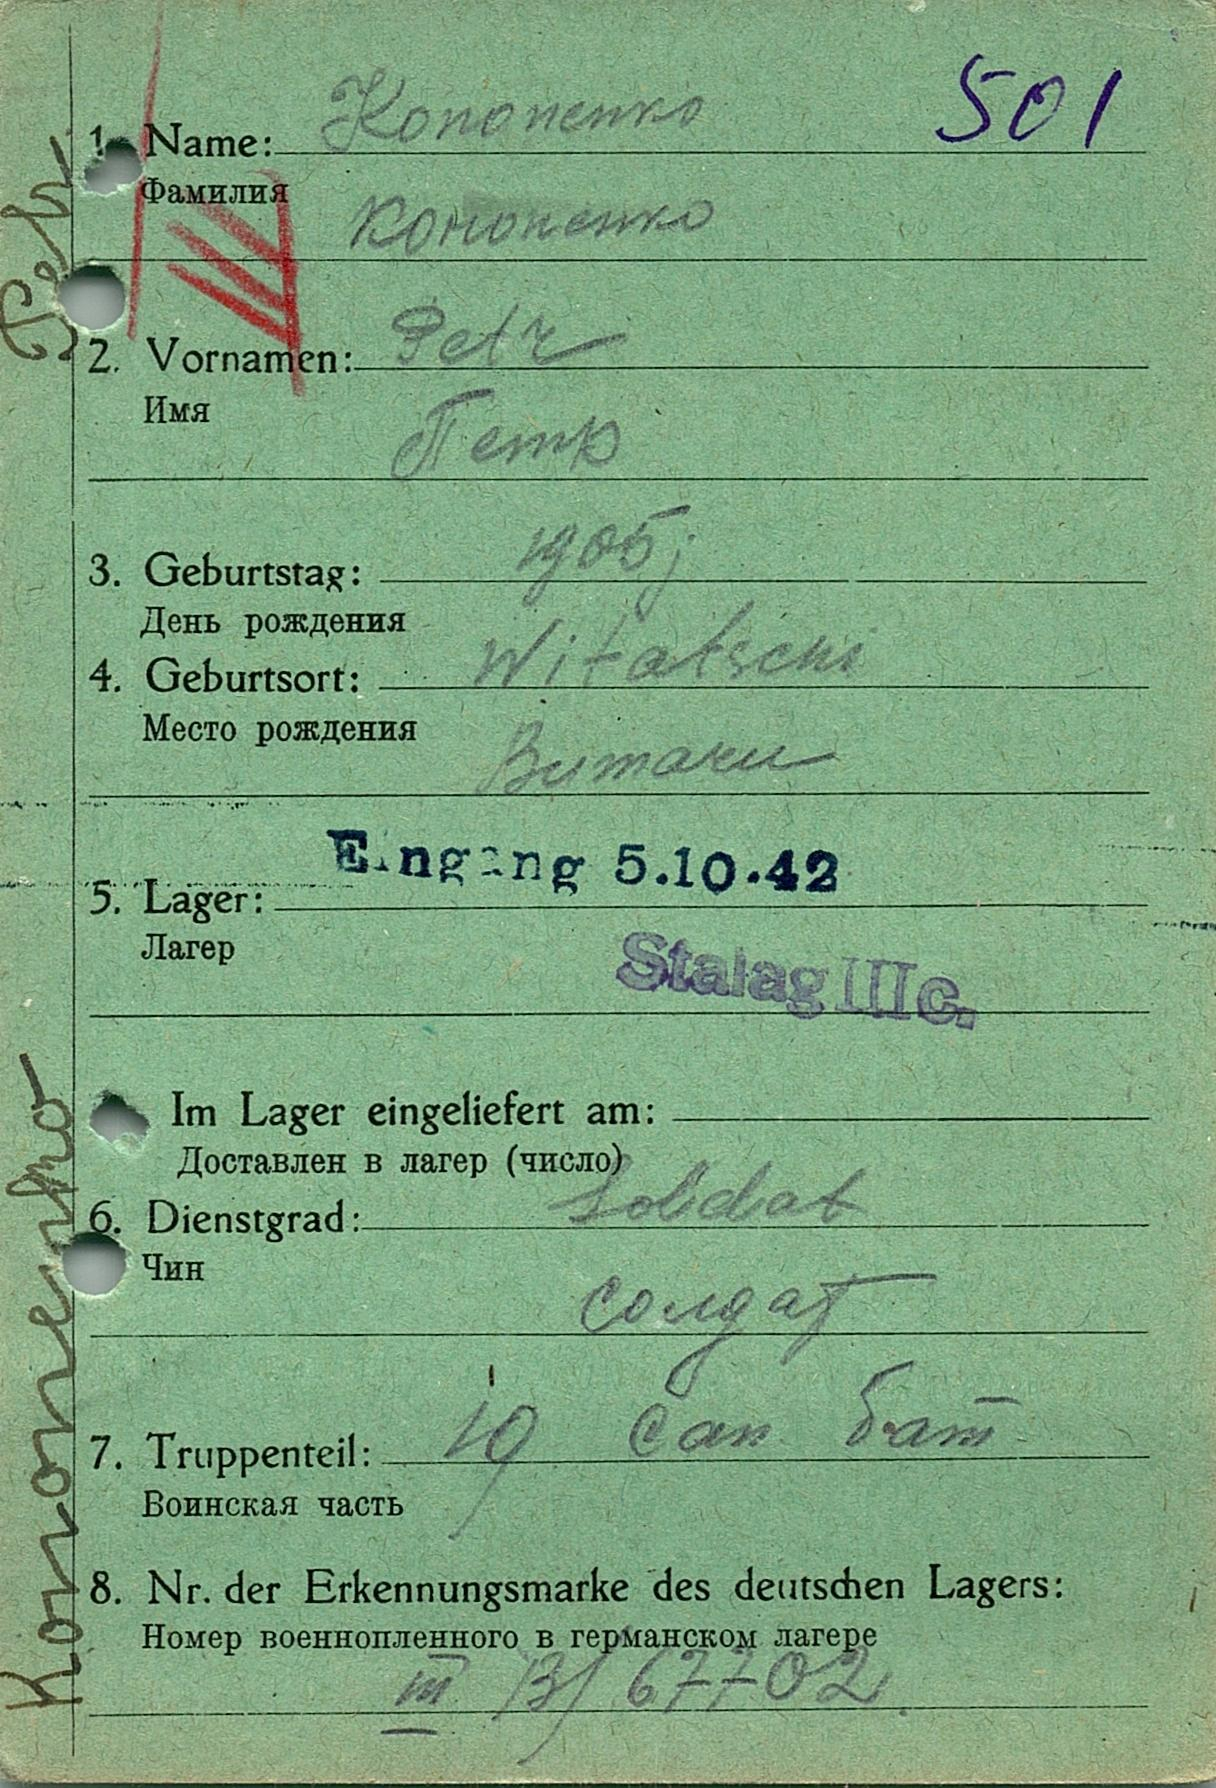 501
1. Name: Kononenko
Фамилия
Кононенко
2. Vornamen: Petr
Имя
Петр
3. Geburtstag: 1905
День рождения
4. Geburtsort: Witatschi
Место рождения
Витачи
Eingang 5.10.42
5. Lager:
Лагер
Stalag III c.
Im Lager eingeliefert am:
Доставлен в лагер (число)
6. Dienstgrad: Soldat
Чин
солдат
7. Truppenteil: 10 сап бат
Воинская часть
8. Nr. der Erkennungsmarke des deutschen Lagers:
Номер военнопленного в германском лагере
III B/ 67702
Kononenko Petr